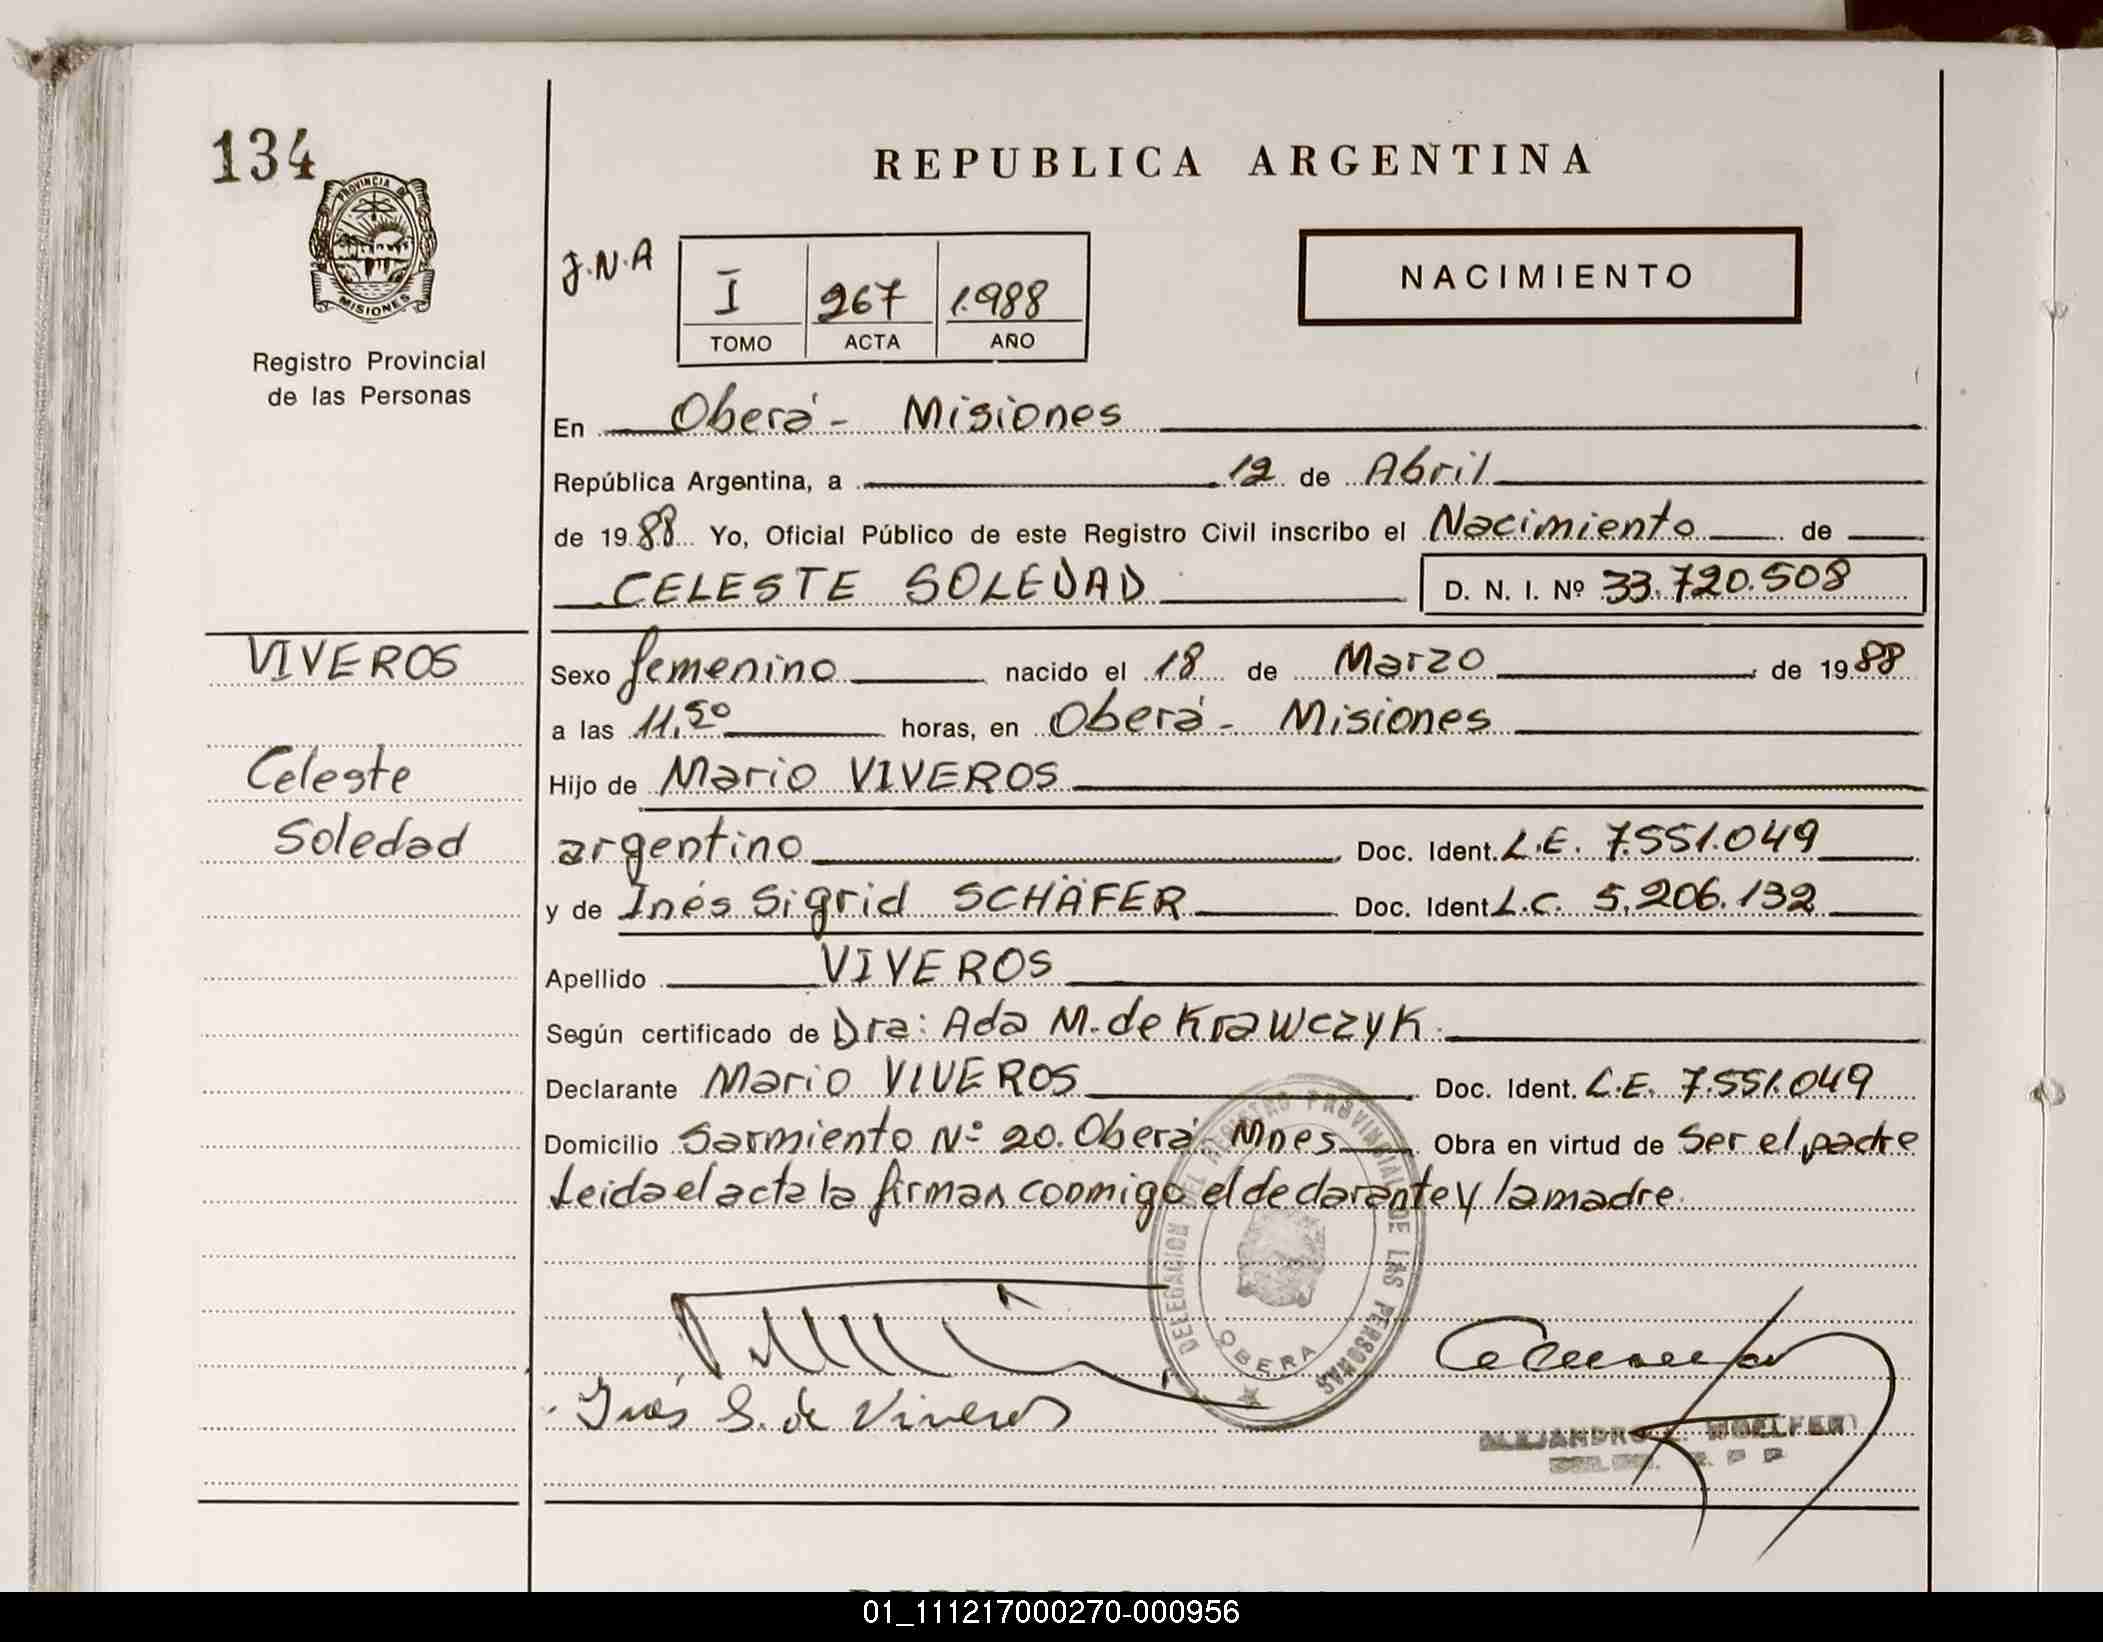 134
PROVINCIA DE
MISIONES
Registro Provincial
de las Personas
REPUBLICA ARGENTINA
J.N.A
I 267 1.988
TOMO ACTA AÑO
NACIMIENTO
En Oberá - Misiones
República Argentina, a 12 de Abril
de 1988 Yo, Oficial Público de este Registro Civil inscribo el Nacimiento de
CELESTE SOLEDAD D. N. I. Nº 33.720.508
VIVEROS
Celeste
Soledad
Sexo femenino nacido el 18 de Marzo de 1988
a las 11,50 horas, en Oberá - Misiones
Hijo de Mario VIVEROS
argentino Doc. Ident. L.E. 7.551.049
y de Inés Sigrid SCHÄFER Doc. Ident. L.C. 5.206.132
Apellido VIVEROS
Según certificado de Dra: Ada M. de Krawczyk.
Declarante Mario VIVEROS Doc. Ident. L.E. 7.551.049
Domicilio Sarmiento Nº 20. Oberá Mnes Obra en virtud de Ser el padre
Leida el acta la firman conmigo el declarante y la madre.
DELEGACION DEL REGISTRO PROVINCIAL DE LAS PERSONAS
OBERA
Inés S. de Viveros
ALEJANDRO WOELFERT
R. P P
01_111217000270-000956